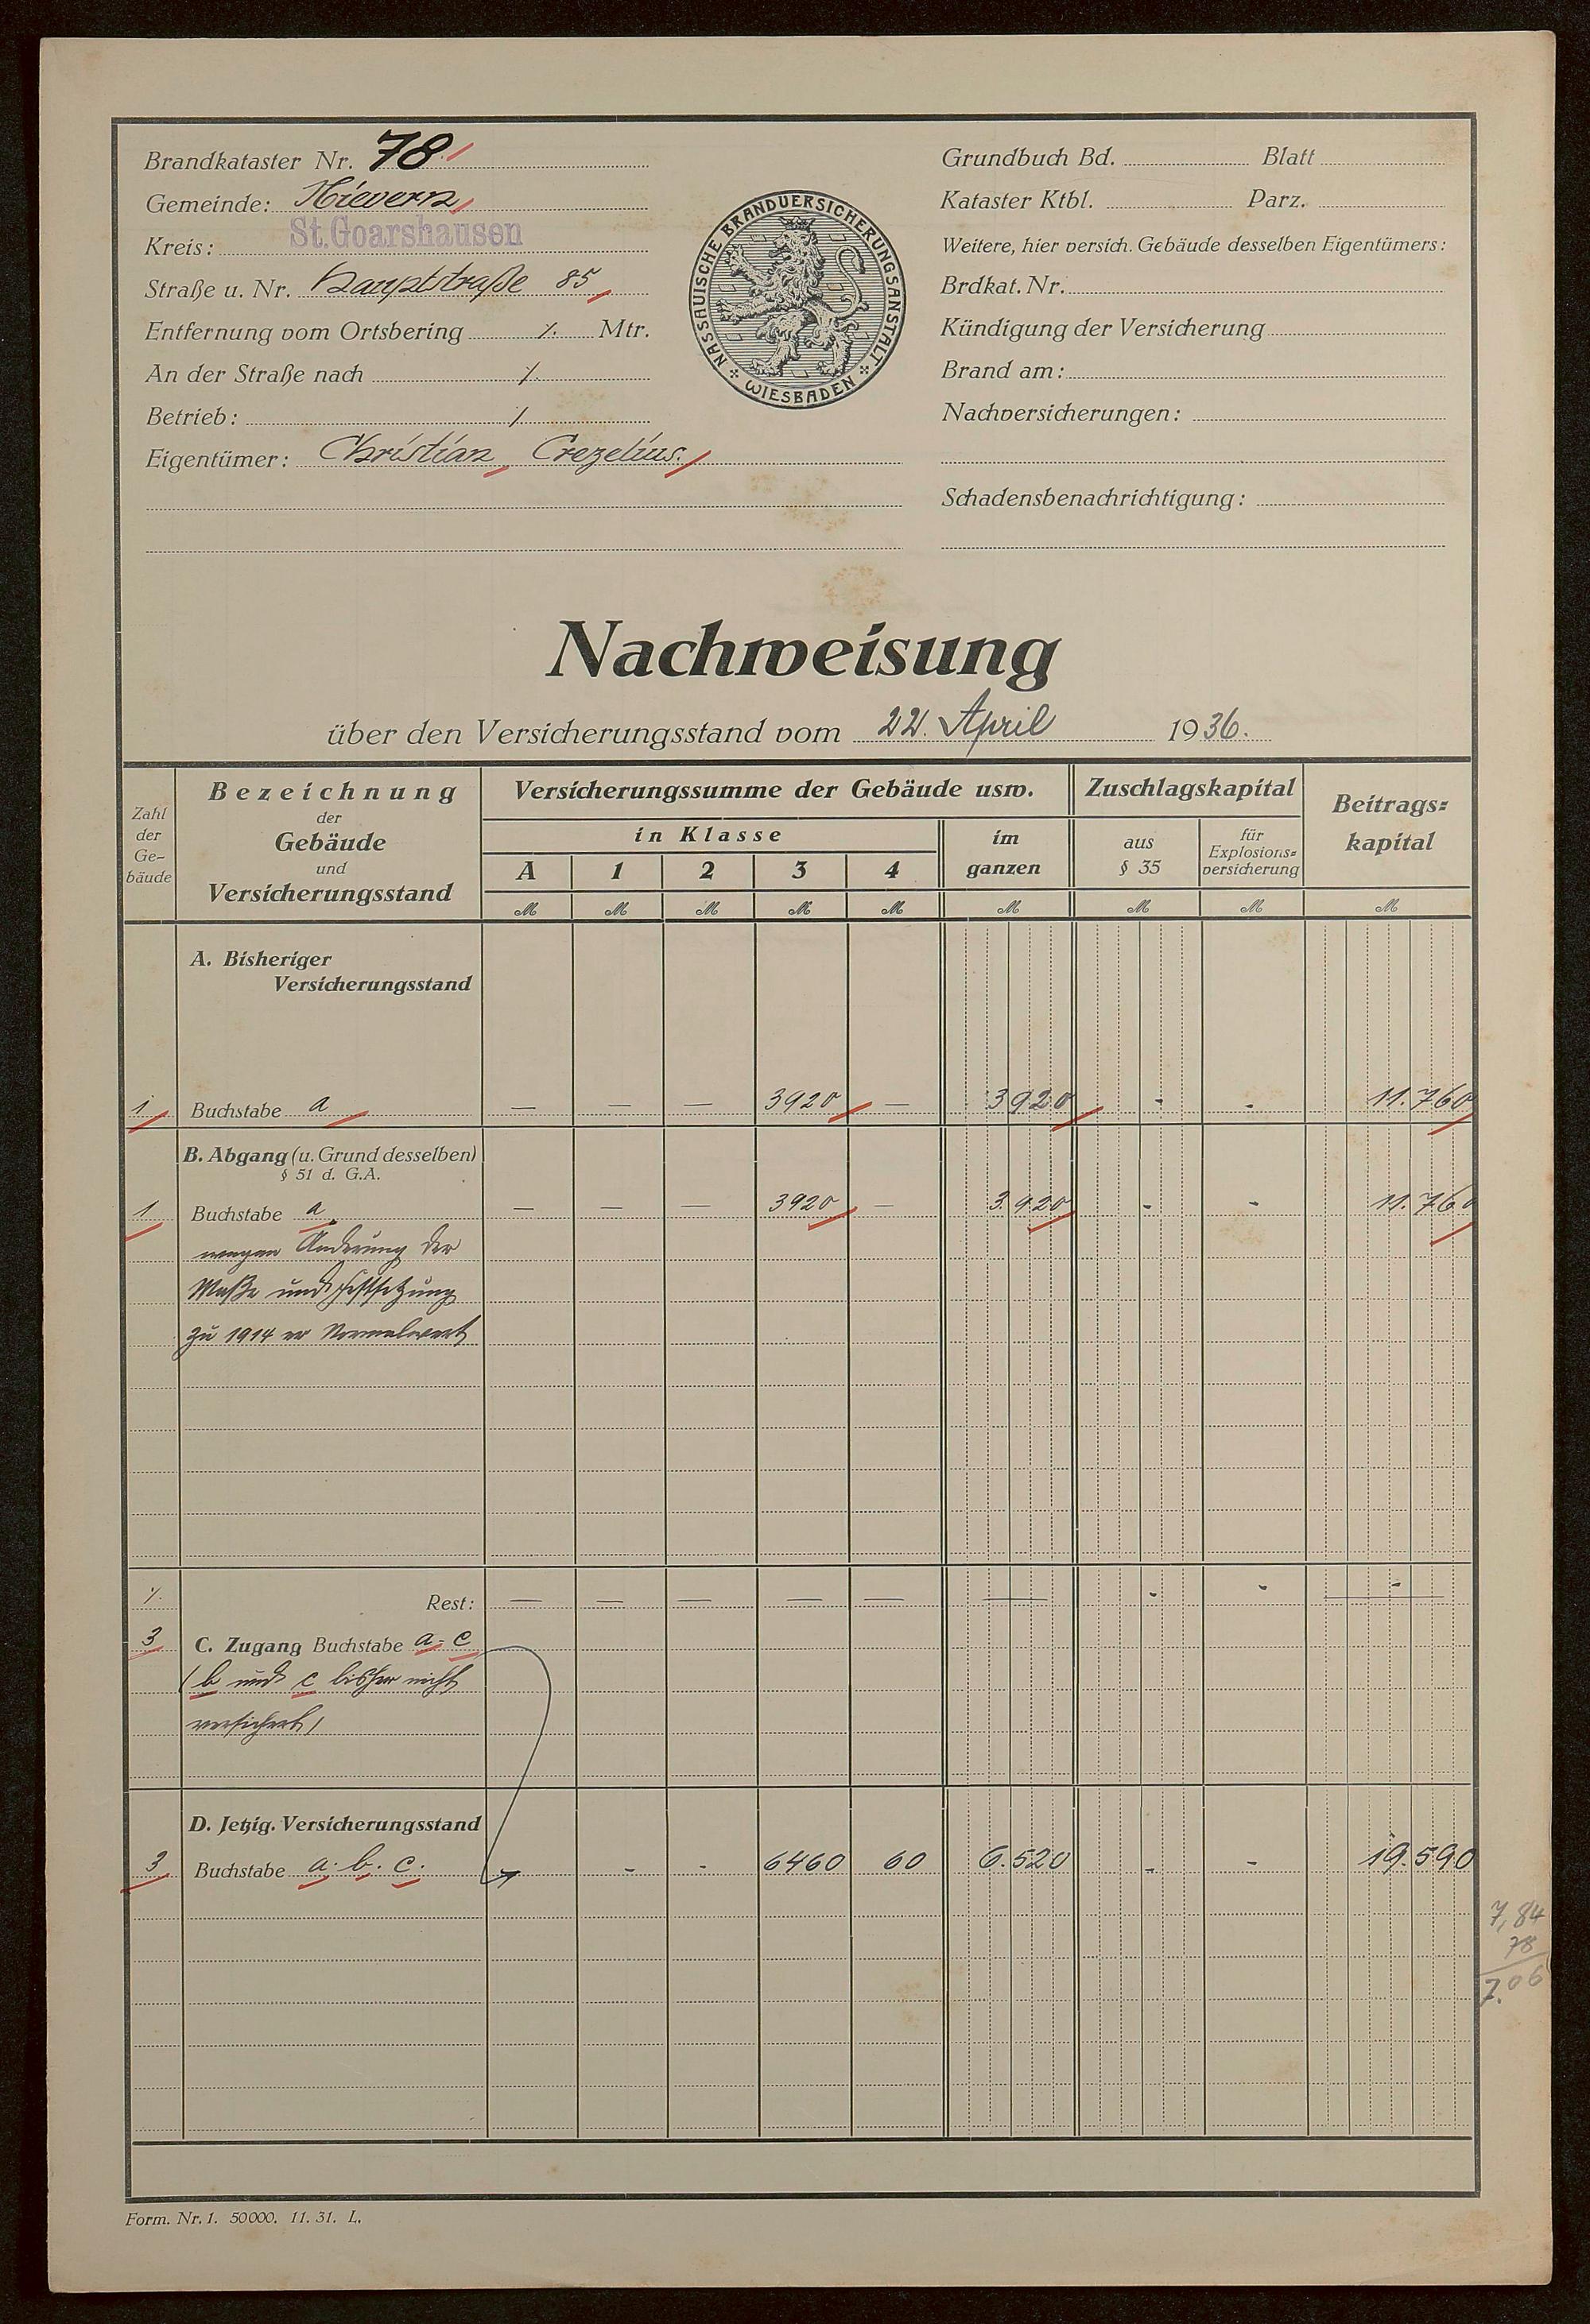 Brandkataster Nr. 78
Gemeinde: Nievern
Kreis: St. Goarshausen
Straße u. Nr. Hauptstraße 85
Entfernung vom Ortsbering ./. Mtr.
An der Straße nach ./.
Betrieb: ./.
Eigentümer: Christian Crezelius.
NASSAUISCHE BRANDVERSICHERUNGSANSTALT
WIESBADEN
Grundbuch Bd. Blatt
Kataster Ktbl. Parz.
Weitere, hier versich. Gebäude desselben Eigentümers:
Brdkat. Nr.
Kündigung der Versicherung
Brand am:
Nachversicherungen:
Schadensbenachrichtigung:
Nachweisung
über den Versicherungsstand vom 22. April 1936.
Zahl der Ge-bäude
Bezeichnung
der
Gebäude
und
Versicherungsstand
Versicherungssumme der Gebäude usw.
in Klasse
A 1 2 3 4
im ganzen
Zuschlagskapital
aus § 35
für Explosions=versicherung
Beitrags=kapital
M M M M M M M M M
A. Bisheriger
Versicherungsstand
1 Buchstabe a — — — 3920 — 3920 - - 11.760
B. Abgang (u. Grund desselben)
§ 51 d. G.A.
1 Buchstabe a — — — 3920 — 3.920 - - 11.760
wegen Änderung der
Maße und Festsetzung
zu 1914 er Normalwert
./. Rest: — — — — — — - - -
3 C. Zugang Buchstabe a-c
(b und c bisher nicht
versichert)
D. Jetzig. Versicherungsstand
3 Buchstabe a. b. c. - - 6460 60 6.520 - - 19.590
7,84
78
7.06
Form. Nr. 1. 50000. 11. 31. L.